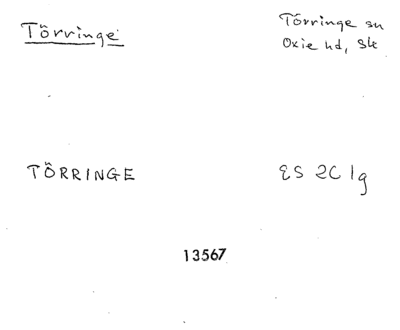 Törringe
Törringe sn
Oxie hd, Sk
TÖRRINGE
ES 2C 1g
13567